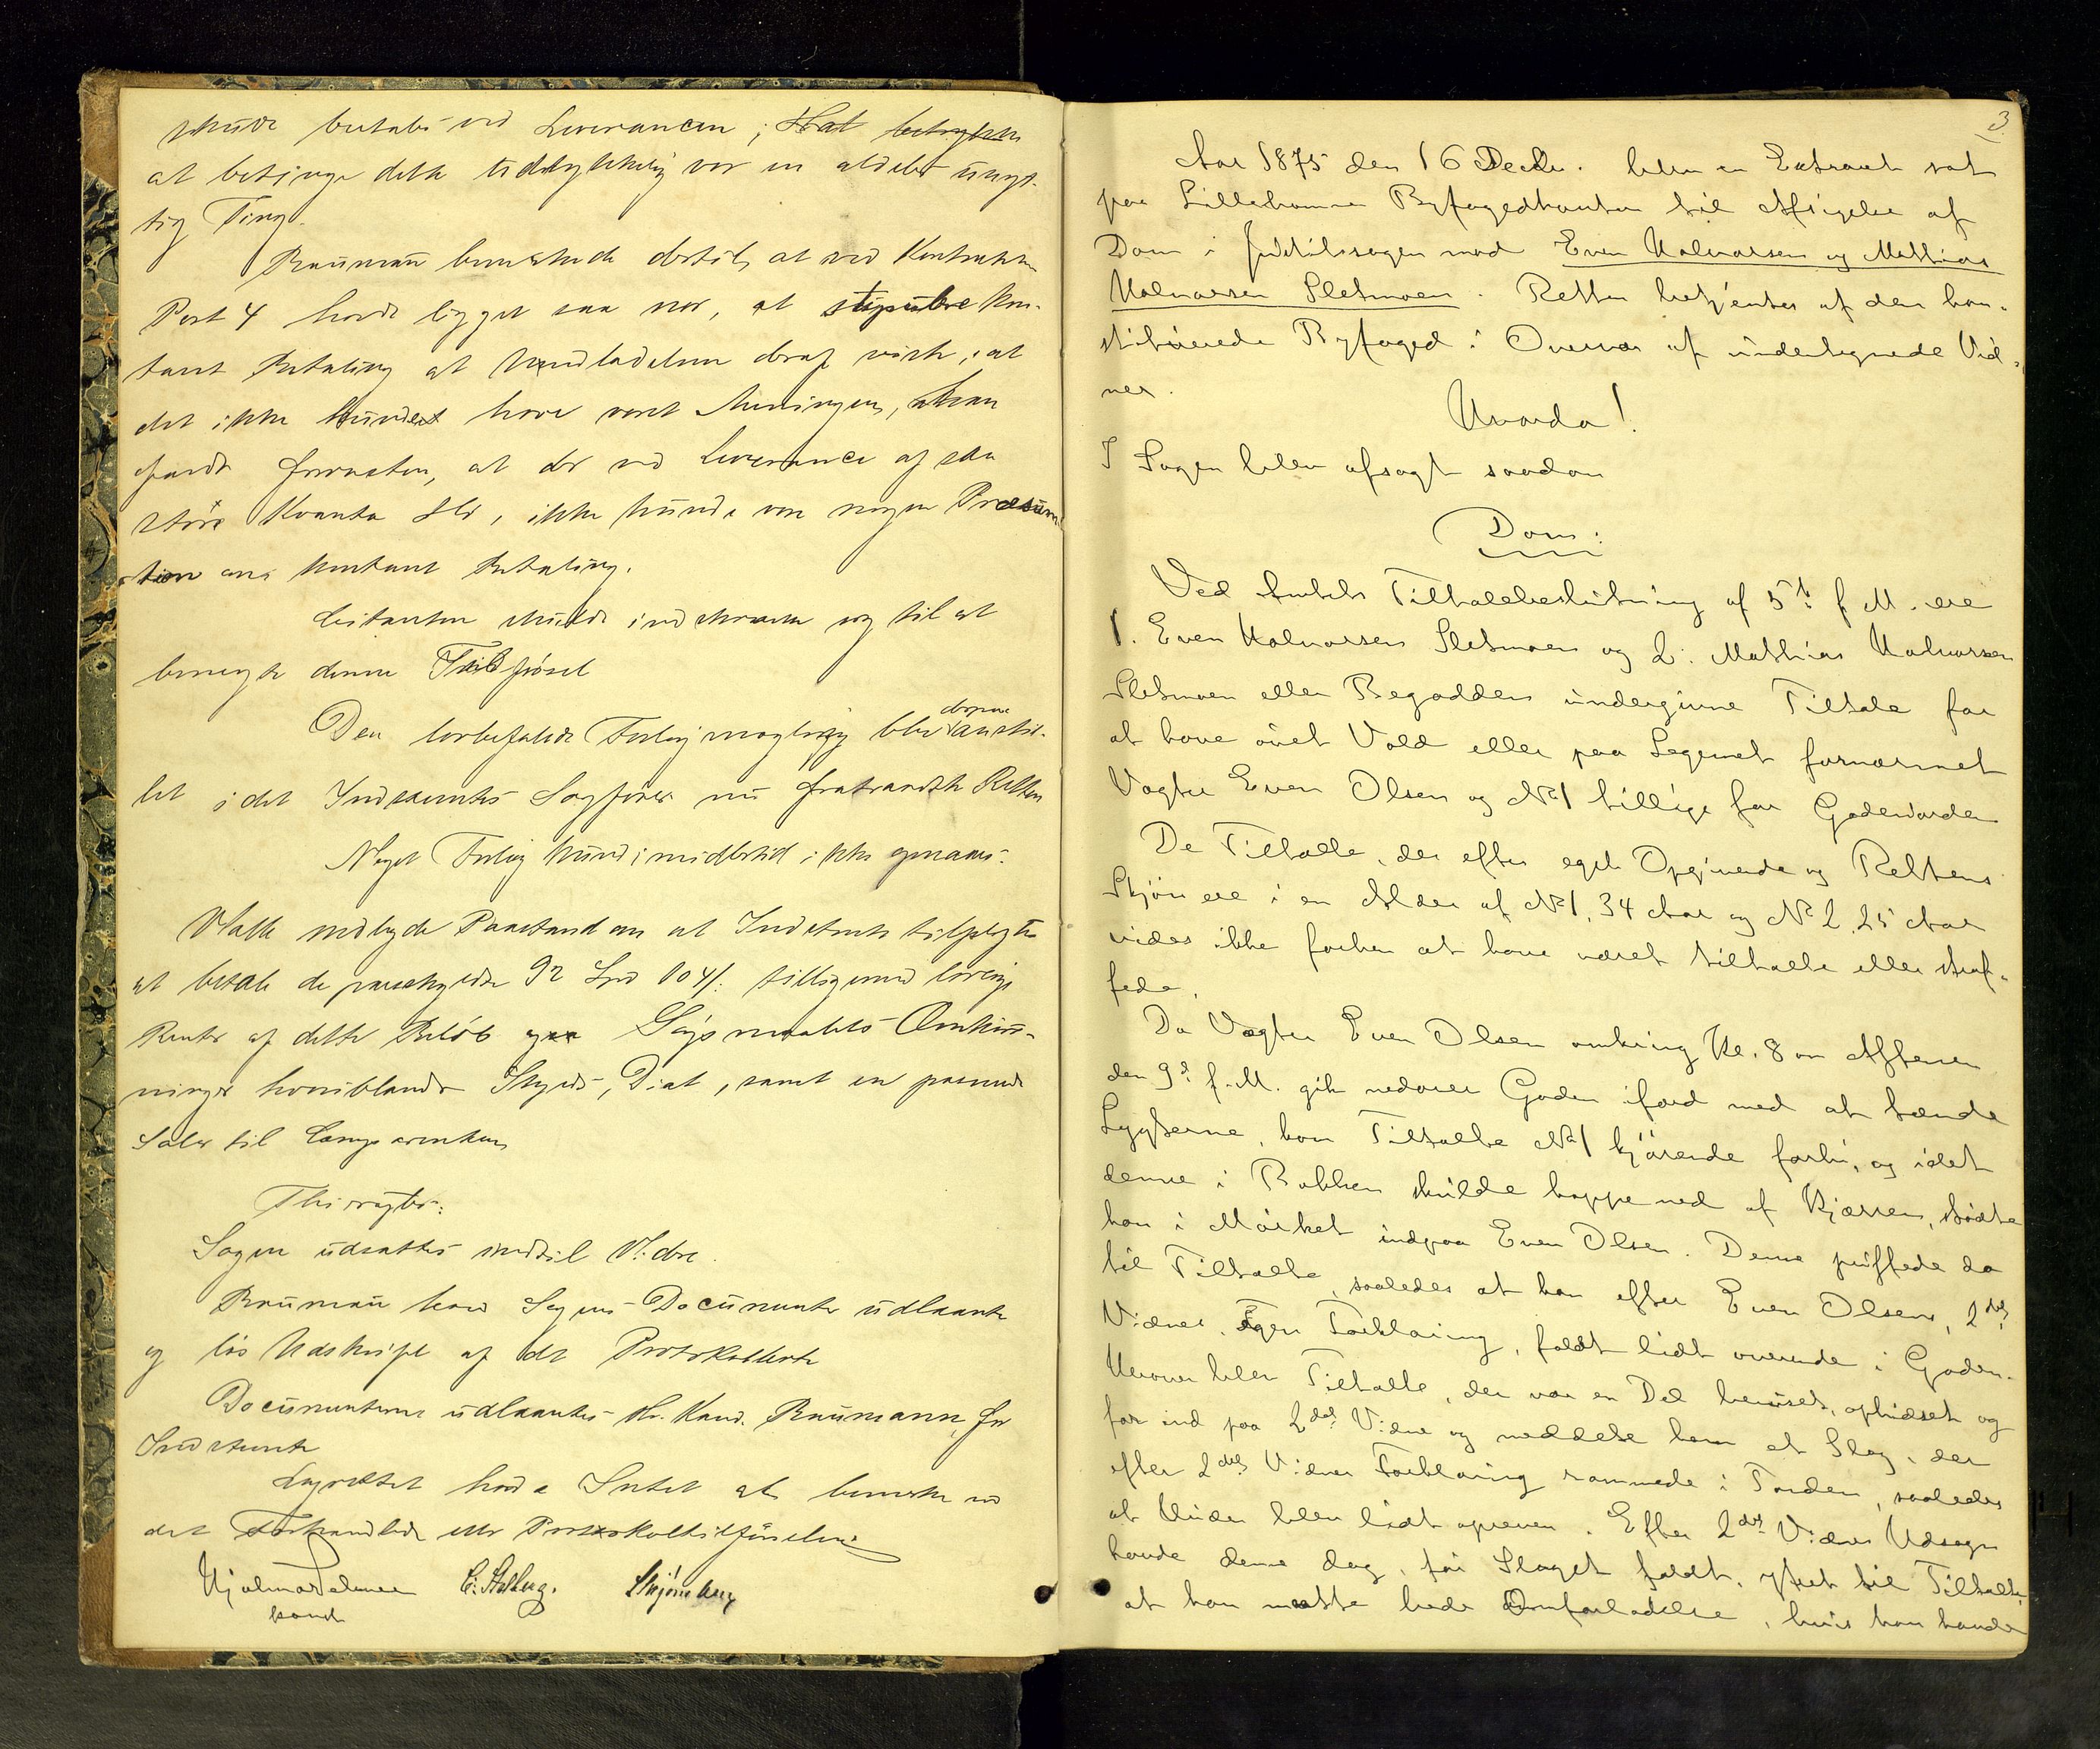 skulde betales ved Leverancen; 
at betinge dette udtrykkelig var en aldeles unyt-
tig Ting.
Baumann bemærkede dertil, at ved Kontraktens
Post 4 havde ligget saa nær, at stipulere kon-
tant Betaling at Undladelsen deraf viste, at
det ikke kunde have været Meningen,
at der ved Leverance af saa
store Kvanta Øl, ikke kunde være nogen Præsum
tion om kontant Betaling.
Citanten skulde indskrænke sig til at
benegte denne Tilførsel
Den lovbefalede Forligsmægling blev derpaa anstil-
let idet Indstevntes Sagfører nu fratraadte Retten
Noget Forlig kunde imidlertid ikke opnaaes.
nedlagde Paastand om at Indstevnte tilpligtes
at betale de paaskyldte 92 Spd 104 /: tilligemed lovlige
Renter af dette Beløb og Søgsmaalets Omkost-
ninger horiblandt Skyds, Diæt, samt en passende
Salær til
Thi vragtes:
Sagen udsættes indtil Videre.
Baumann havde Sagens Documenter udlaante
og løs Udskrift af det Protokollerte
Documenterne udlaantes Hr. Kand. Baumann, for
Indstevnte
Lagrettet havde Intet at bemerke ved
det Forhandlede eller Protokoltilførslen.
C: Stalberg. Skjønsberg
const
3
Aar 1875 den 16 Decbr. blev en Extraret sat
paa Lillehammer Byfogedkontor til Afsigelse af
Dom i Justitssagen mod Even Halvorsen og Mathias
Halvorsen Sletmoen. Retten betjentes af den kon-
stituerede Byfoged i Overvær af undertegnede Vid-
ner.
Hvorda!
I Sagen blev afsagt saadan
Dom:
Ved Amtets Tiltalebeslutning af 5te f. M. ere
1. Even Halvorsen Sletmoen og 2. Mathias Halvorsen
Sletmoen eller Begadden undergivne Tiltale for
at have øvet Vold eller paa Legemet fornærmet
Vægter Even Olsen og No 1 tillige for Gadeuorden
De Tiltalte, der efter eget Opgivende og Rettens
Skjøn ere i en Alder af No 1, 34 Aar og No 2, 25 Aar
vides ikke forhen at have været tiltalte eller straf-
fede.
Da Vægter Even Olsen omkring Kl. 8 om Aftenen
den 9de f. M. gik nedover Gaden ifærd med at tænde
Lygterne, kom Tiltalte No 1 kjørende forbi, og idet
denne i Bakken skulde hoppe ned af Kjærren, stødte
han i Mørket indpaa Even Olsen. Denne puffede da
til Tiltalte, saaledes at han efter Even Olsens, 2det
Vidnes, Egen Forklaring, faldt lidt overende i Gaden.
Herover blev Tiltalte, der var en Del beruset, ophidset og
for ind paa 2det Vidne og meddelte ham et Slag, der
efter 2det Vidnes Forklaring rammede i Panden, saaledes
at Huden blev lidt opreven. Efter 2det Vidnes Udsagn
havde denne dog, før Slaget faldt, ytret til Tiltalte,
at han maatte bede Omforladelse, hvis han havde